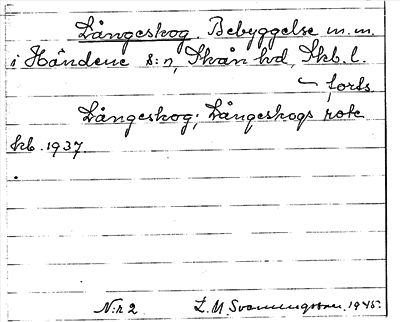 Långeskog. Bebyggelse m.m.
i Händene s:n, Skån hd, Skb. l.
forts.
Långeskog; Långeskogs rote
kb. 1937.
N:r 2 L. M. Svanungsson 1945.